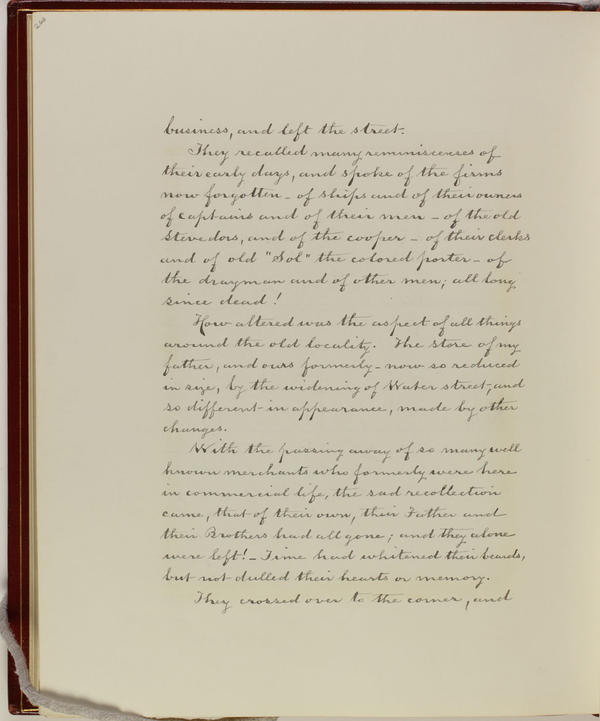 260
business, and left the street.
They recalled many reminiscenses of
their early days, and spoke of the firms
now forgotten - of ships and of their owners
of captains and of their men - of the old
stevedors, and of the cooper - of their clerks
and of old "Sol" the colored porter - of
the drayman and of other men; all long
since dead!
How altered was the aspect of all things
around the old locality. The store of my
father, and ours formerly - now so reduced
in size, by the widening of Water street, and
so different in appearance, made by other
changes.
With the passing away of so many well
known merchants who formerly were here
in commercial life, the sad recollection
came, that of their own, their Father and
their Brothers had all gone; and they alone
were left! - Time had whitened their beards,
but not dulled their hearts or memory.
They crossed over to the corner, and